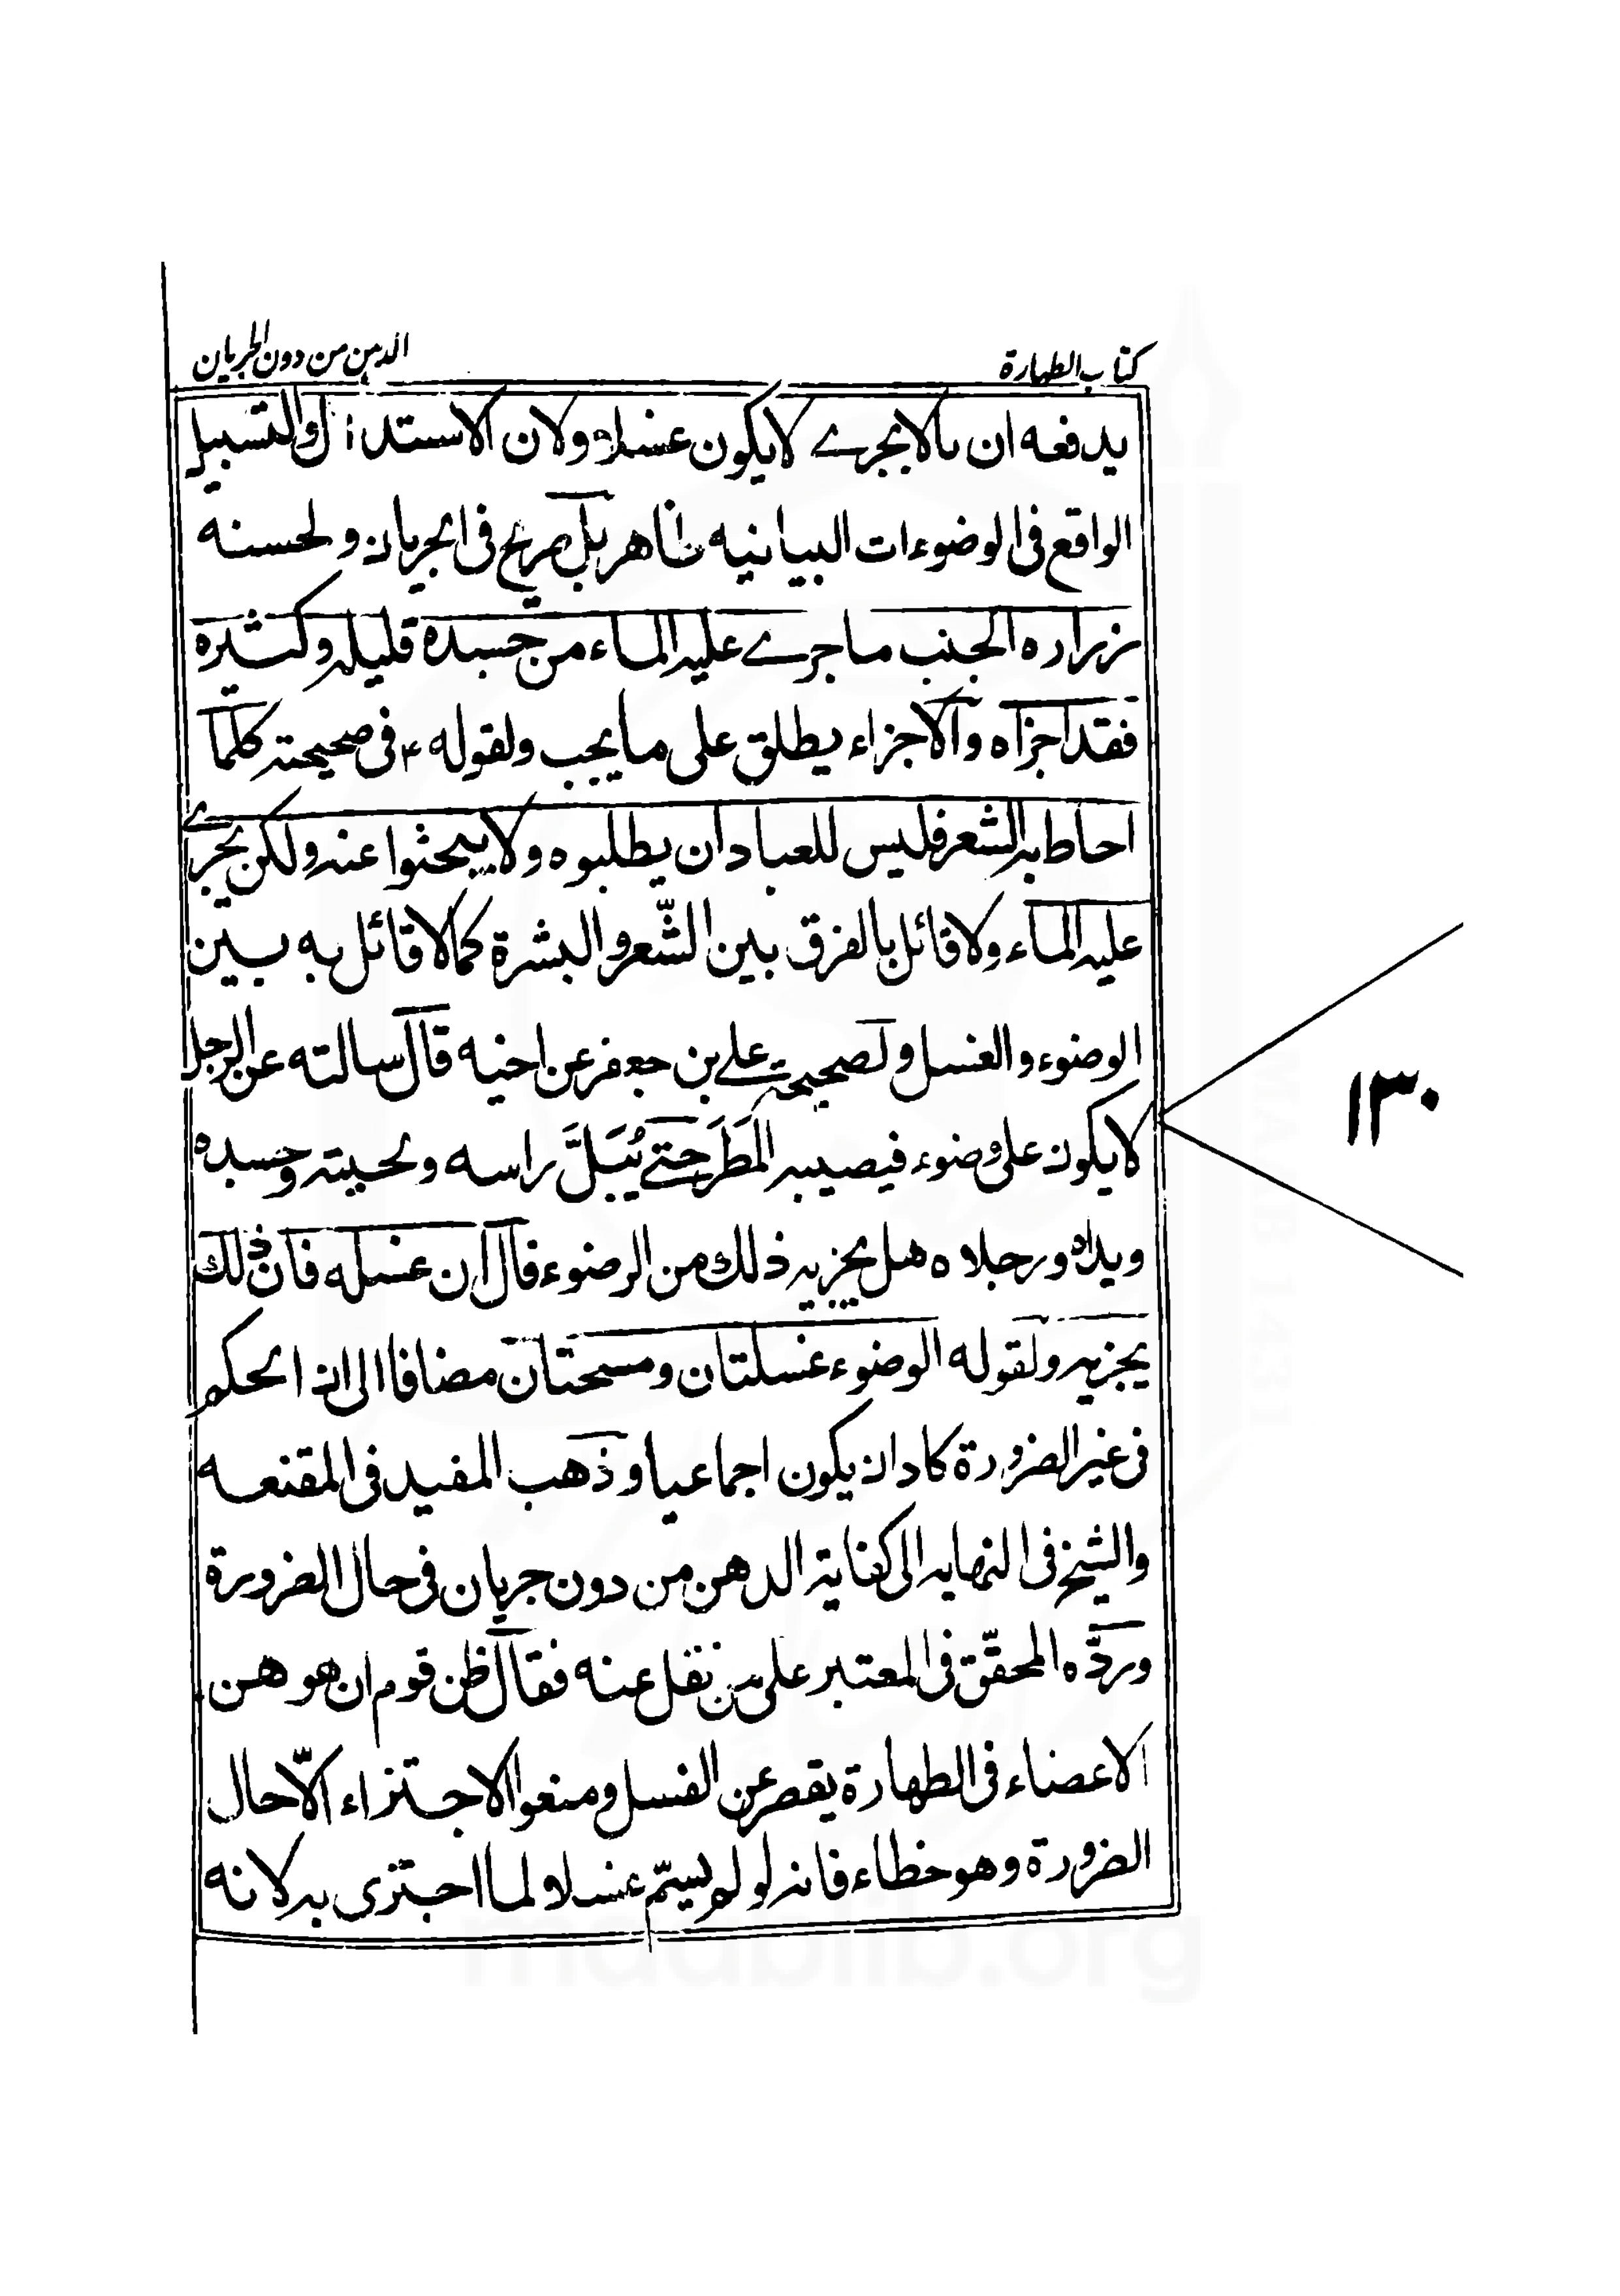 كتاب الطهارة
الدهن من دون الجريان
يدفعه ان مالايجرے لايكون غسلا ولان الاستدلال والتسبيل
الواقع فى الوضوءات البيانيه ظاهر بل صريح فى الجريان ولحسنه
زراره الجنب ماجرے عليه الماء من جسده قليله وكثيره
فقد اجزاه والاجزاء يطلق على ما يجب ولقوله ۴ فى صحيحته كلما
احاط به الشعر فليس للعباد ان يطلبوه ولا يبحثوا عنه ولكن يجرے
عليه الماء ولا قائل بالفرق بين الشّعر والبشرة كما لا قائل به بين
الوضوء والغسل ولصحيحة على بن جعفر عن اخيه قال سالته عن الرجل
لايكون على وضوء فيصيبه المَطَر حتے يُبَلَّ راسه ولحيته وجسده
ويداه ورجلاه هل يجزيه ذلك من الوضوء قال ان غسله فان ذلك
يجزيه ولقوله الوضوء غسلتان ومسحتان مضافا الى ان الحكم
فى غير الضرورة كاد ان يكون اجماعيا وذهب المفيد فى المقنعه
والشيخ فى النهايه الى كفاية الدهن من دون جريان فى حال الضرورة
وردّه المحقّق فى المعتبر على من نقل عنه فقال ظن قوم ان هو هن
الاعضاء فى الطهارة يقصر عن الغسل ومنعوا الاجتزاء الّا حال
الضرورة وهو خطاء فانه لو لم يسمّ غسلا ولما اجتزى به لانه
١٣٠
maablib.org